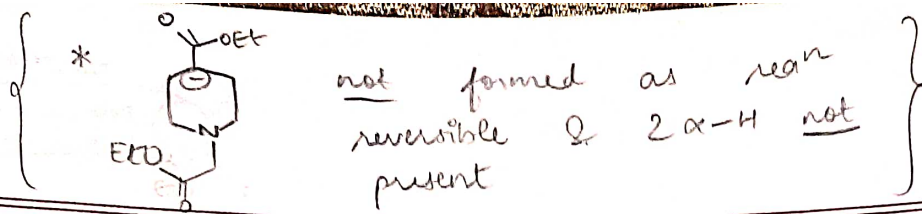 *
O
OEt
⊖
N
EtO
O
not formed as reaⁿ
reversible & 2 α-H not
present